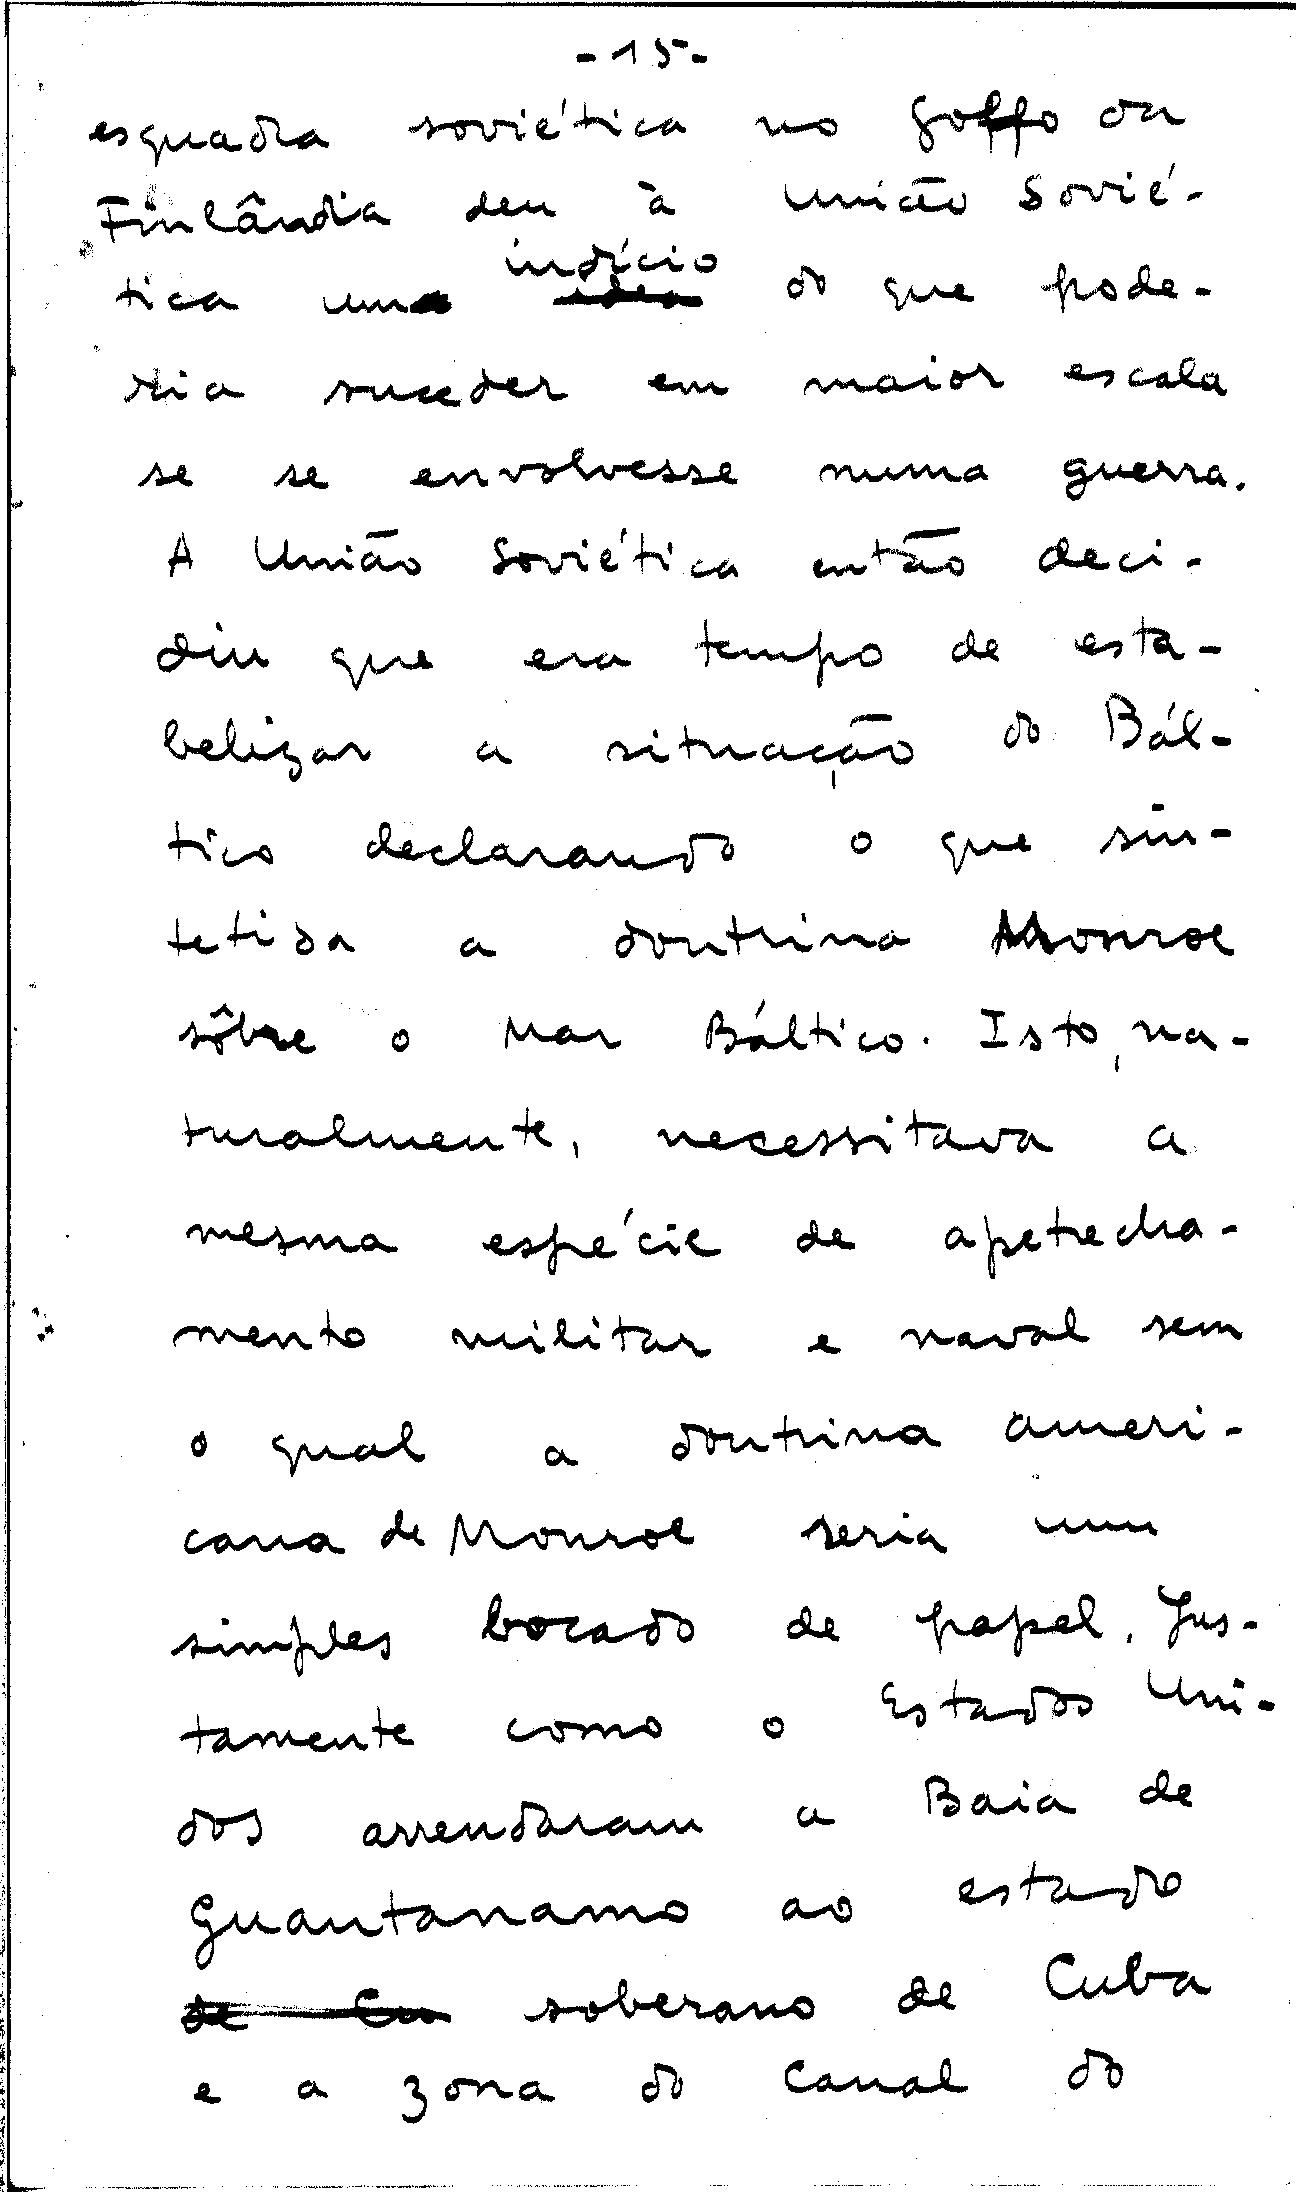 -15-
esquadra soviética no golfo da
Finlândia deu à União Sovié-
indício
tica um do que pode-
ria suceder em maior escala
se se envolvesse numa guerra.
A União Soviética então deci-
diu que era tempo de esta-
belizar a situação do Bál-
tico declarando o que sin-
tetisa a doutrina Monroe
sôbre o Mar Báltico. Isto, na-
turalmente, necessitava a
mesma espécie de apetrecha-
mento militar e naval sem
o qual a doutrina ameri-
cana de Monroe seria um
simples bocado de papel. Jus-
tamente como o Estados Uni-
dos arrendaram a Baia de
Guantanamo ao estado
de Cu soberano de Cuba
e a zona do Canal do